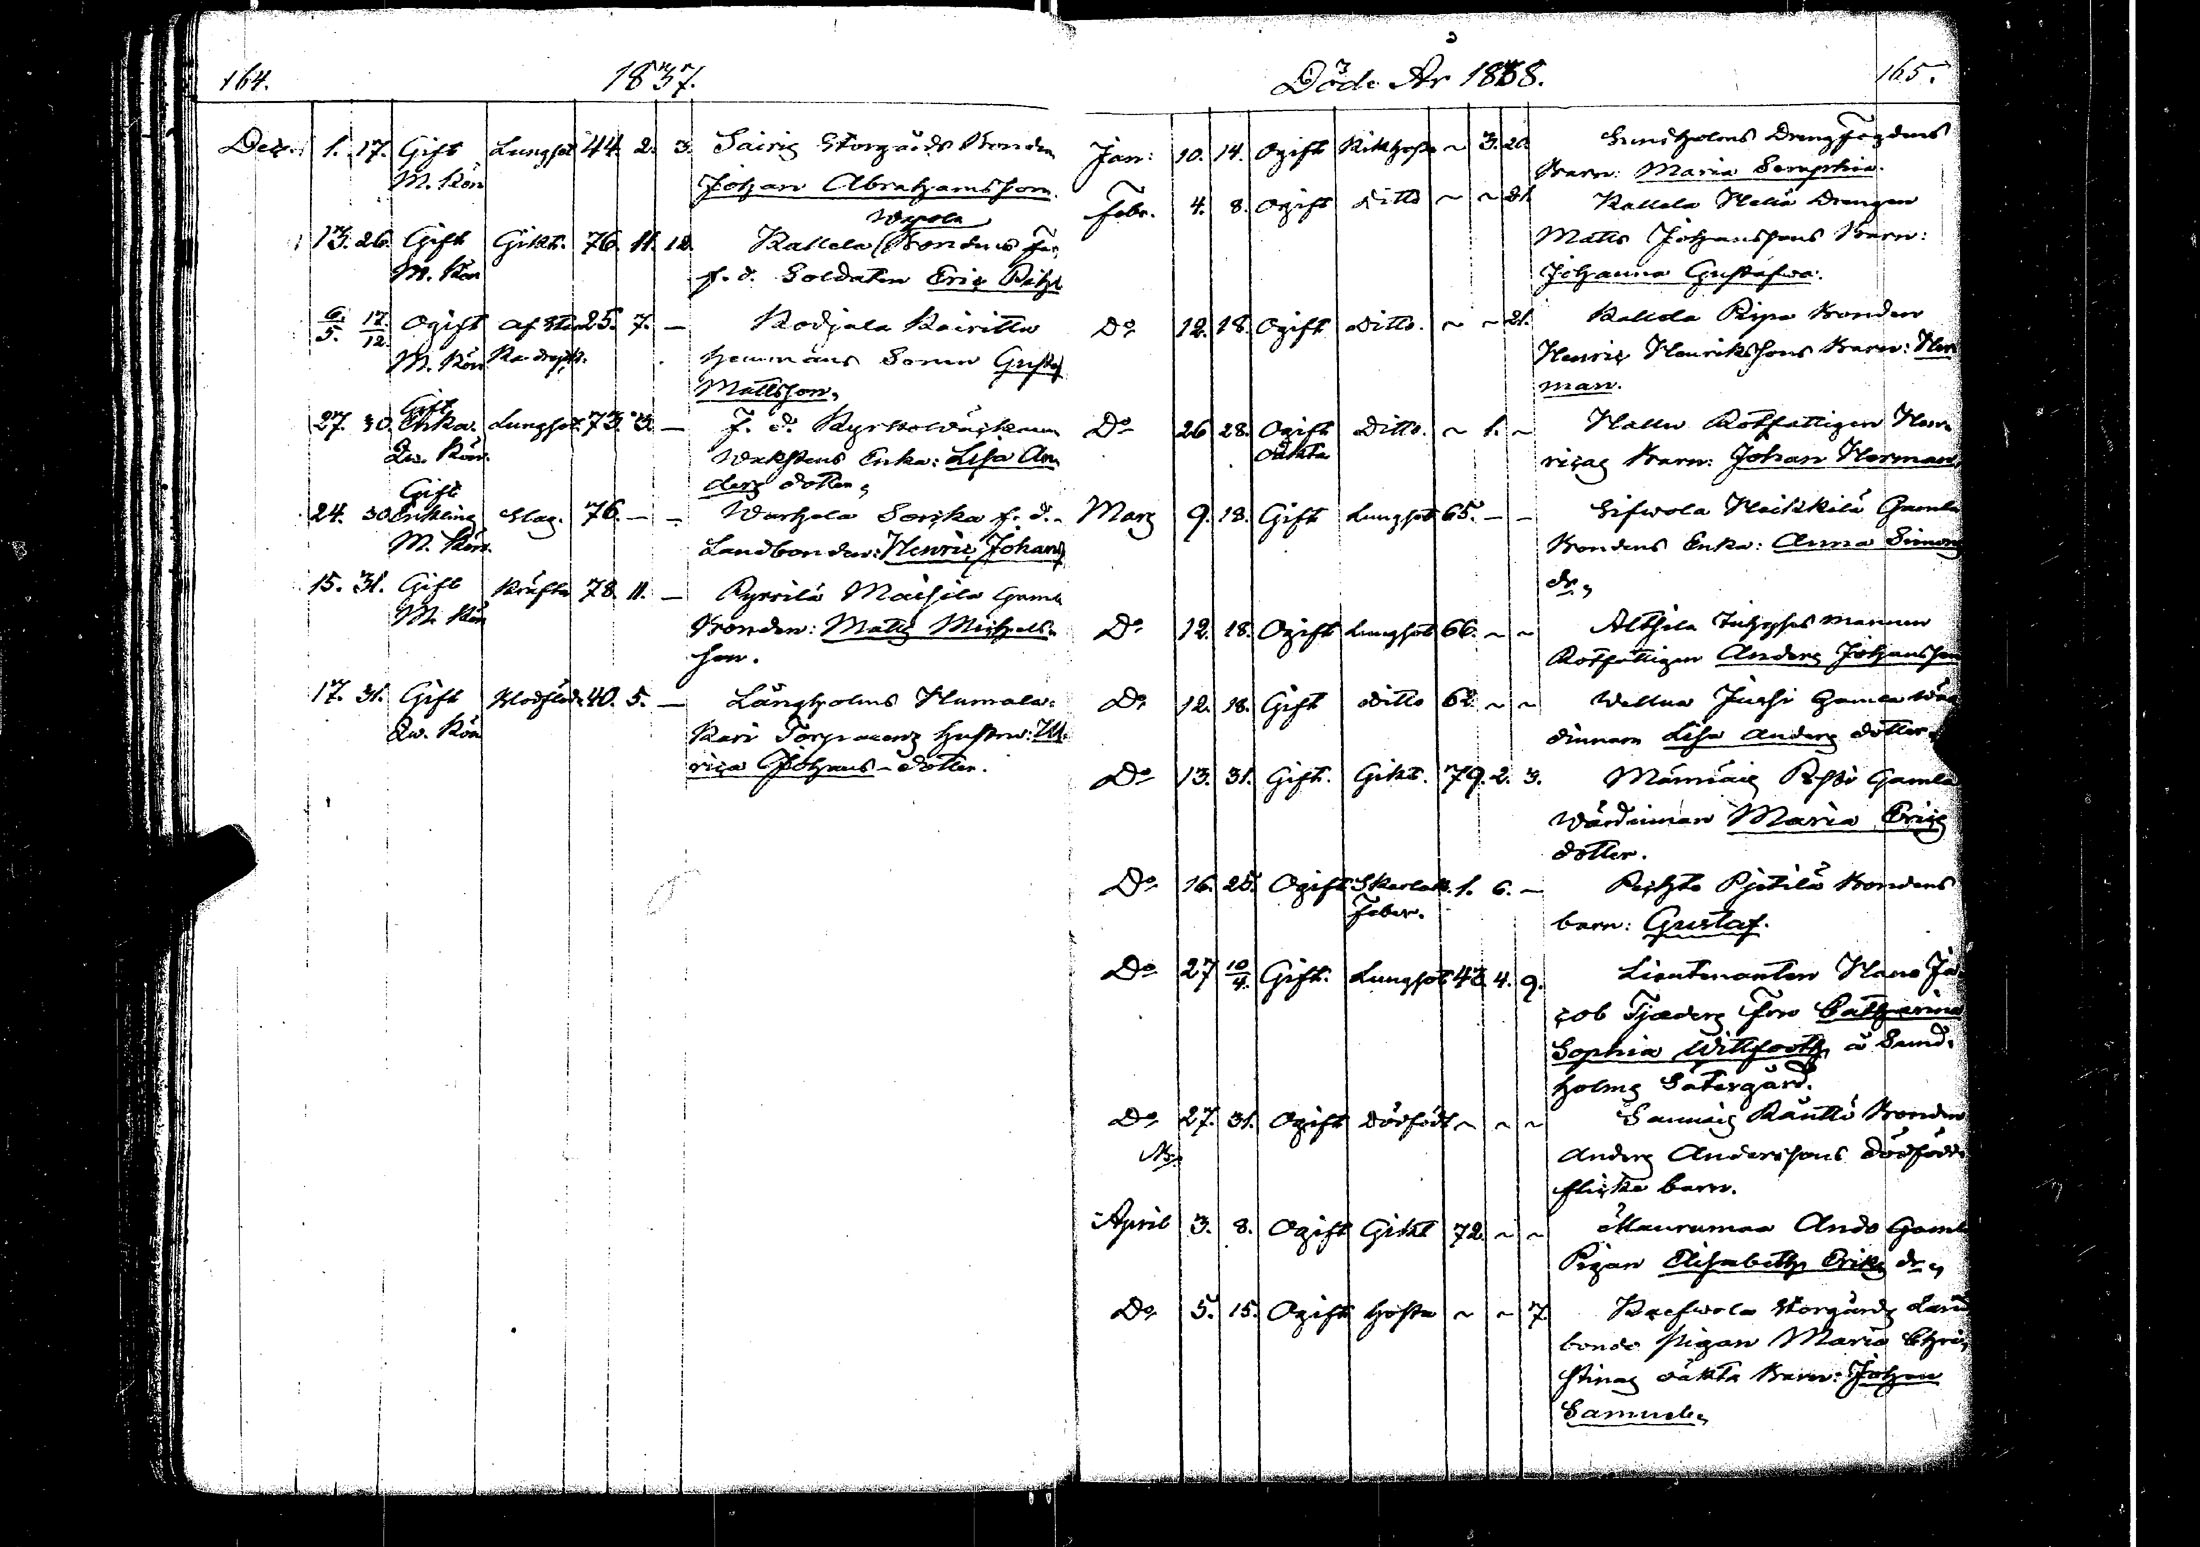 164.
1837.
Dec. 1. 17. Gift Lungsot 44. 2. 3. Sairis Storgårds Bonden
M. Kön Johan Abrahamsson.
Wepola
13. 26. Gift Gikt. 76. 11. 12. Kallela Bondens
M. Kön f. d. Soldaten Eric
6. 17. Ogift 25. 7. — Kodjala Kairitta
5. 12. M. Kön hemmans Sonen Gustaf
Mattsson,
Gift
27. 30. Enka. Lungsot. 73. 3. — F. d.
Qw. Kön. Enka: Lisa An
ders dotter,
Gift
24. 30. Enkling Slag. 76. — — Warhela f. d.
M. Kön. Landbonden: Henric Johans
15. 31. Gift Kräfta 78. 11. — Pyrrilä Maisila Gamle
M. Kön Bonden: Matts Michels
son.
17. 31. Gift Blodflöd. 40. 5. — Långholms Humala
Qw. Kön Kari Torparens hustru: Ul
rica Johans-dotter.
Döde År 1838.
165.
Jan: 10. 14. Ogift Kikhosta ~ 3. 20. Sundholms Dreng
Barn: Maria Seraphia.
Febr. 4. 8. Ogift Ditto ~ ~ 21. Kallela Heliä Drengen
Matts Johanssons Barn:
Johanna Gustafwa.
Do 12. 18. Ogift Ditto. ~ ~ 21. Kallela Ripa Bonden
Henric Henrikssons Barn: Her
man.
Do 26 28. Ogift Ditto. ~ 1. ~ Hallu Rotfattigen Hen
oäkta ricas Barn: Johan Herman,
Mars 9. 18. Gift Lungsot 65. — — Sifwola Heikkilä Gamla
Bondens Enka: Anna Simons
dr,
Do 12. 18. Ogift Lungsot 66. ~ ~ Althila mannen
Rotfattigen Anders Johansson
Do 12. 18. Gift Ditto 62 ~ ~ Wellua Jussi Gamla Wär
dinnan Lisa Anders dotter.
Do 13. 31. Gift. Gikt. 79. 2. 3. Männäis Gamla
Wärdinnan Maria Erics
dotter.
Do 16. 25. Ogift Skarlak. 1. 6. — Pietilä Bondens
Feber. barn: Gustaf.
Do 27 10 Gift. Lungsot 43. 4. 9. Lieutenanten Hans Ja
4. cob Tjæders Fru Catharina
Sophia Wittfooth å Sund
holms Sätergård.
Do 27. 31. Ogift Dödfödt ~ ~ ~ Sannäis Känttä Bonden
Anders Anderssons Dödfödde
flicke barn.
April 3. 8. Ogift Gikt 72. ~ ~ Maurumaa Ando Gamle
Pigan Elisabeth Eriks dr,
Do 5. 15. Ogift hosta ~ ~ 7. Storgårds Land
bonde pigan Maria Chri
stinas oäkta Barn: Johan
Samuel,